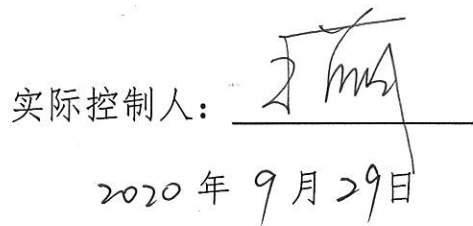 实际控制人：
2020年9月29日